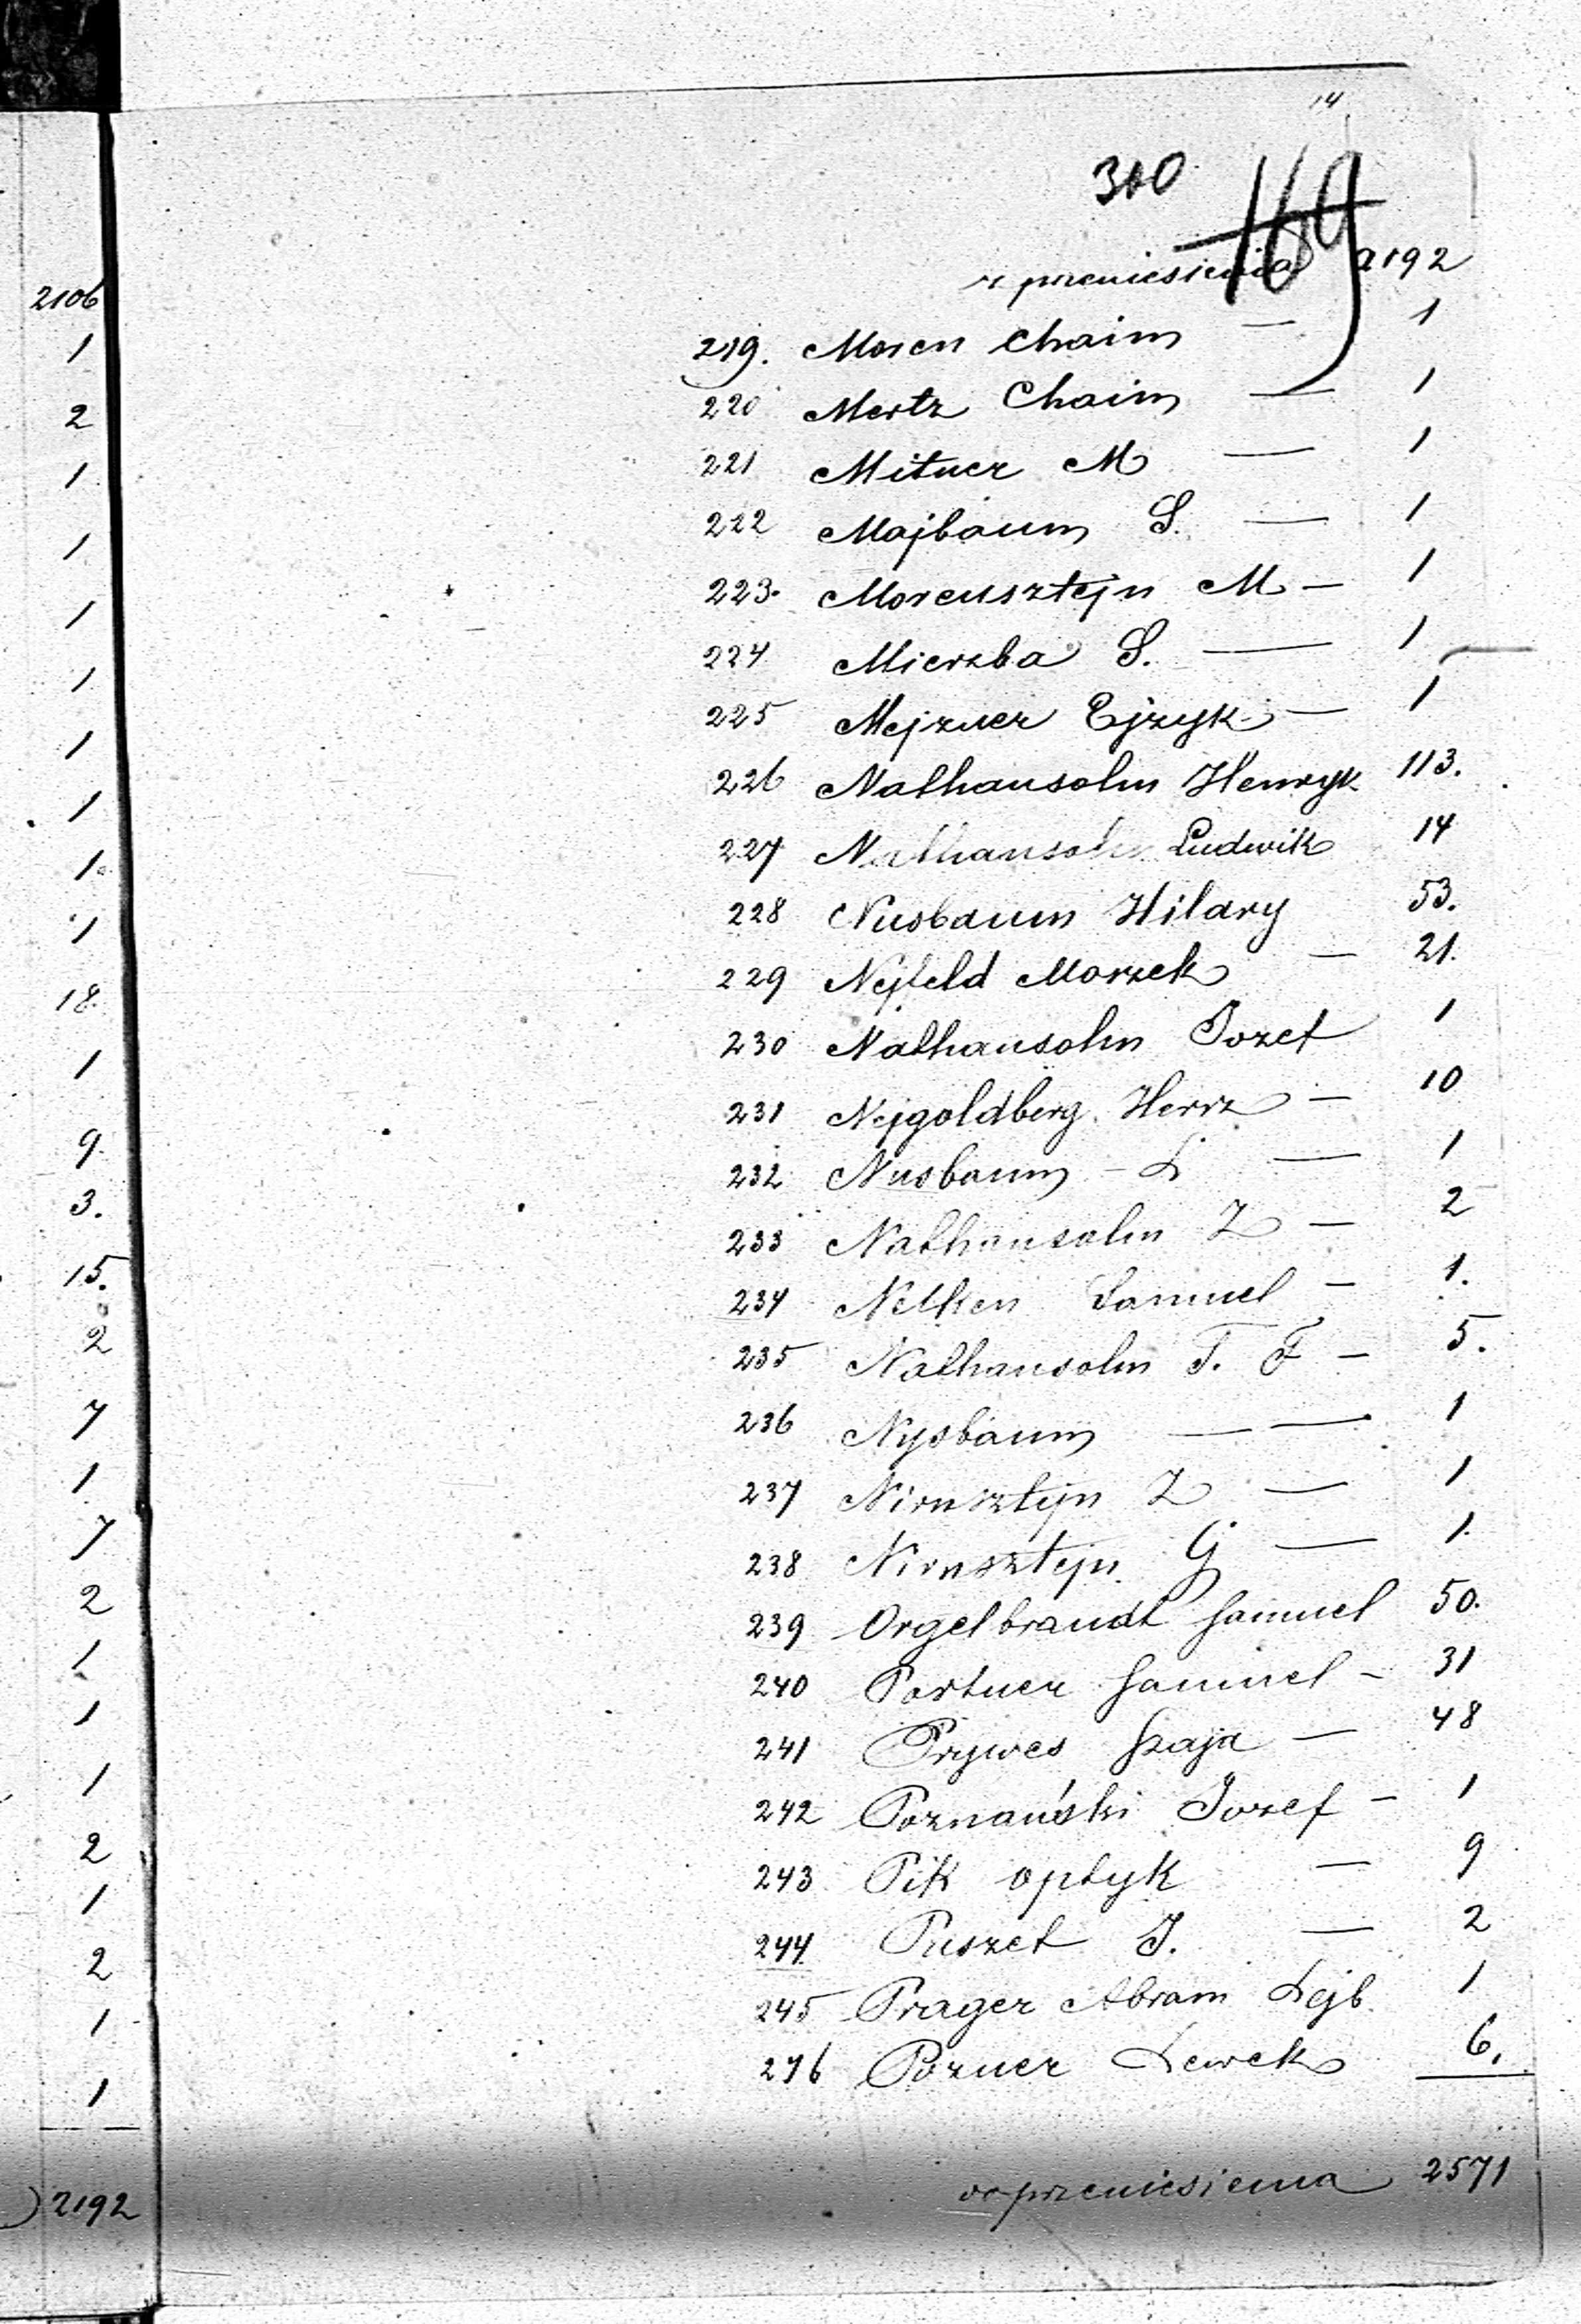 2106
1
2
1
1
1
1
1
1
1
1
18.
1
9.
3.
15.
2
7
1
7
2
1
1
1
2
1
2
1
1
2192
14
300
169
z przeniesienia 2192
219. Moren Chaim — 1
220 Mertz Chaim — 1
221 Mitner M — 1
222 Majbaum S. — 1
223. Morensztejn M — 1
224 Mierzba S. — 1
225 Mejzner Ejzyk — 1
226 Nathansohn Henryk 113.
227 Nathansohn Ludwik 14
228 Nusbaum Hilary 53.
229 Nejfeld Moszek — 21.
230 Nathansohn Jozef 1
231 Nejgoldberg Hersz — 10
232 Nusbaum – L — 1
233 Nathansohn Z — 2
234 Nelken Samuel — 1.
235 Nathansohn T. F — 5.
236 Nysbaum — — 1
237 Nirnsztejn Z — 1
238 Nirnsztejn G — 1.
239 Orgelbrandt Samuel 50.
240 Portner Samuel — 31
241 Prywes Szaja — 48
242 Poznański Jozef — 1
243 Pik optyk — 9
244 Puszet J. — 2
245 Prager Abram Lejb 1
246 Pozner Lewek 6.
do przeniesienia 2571